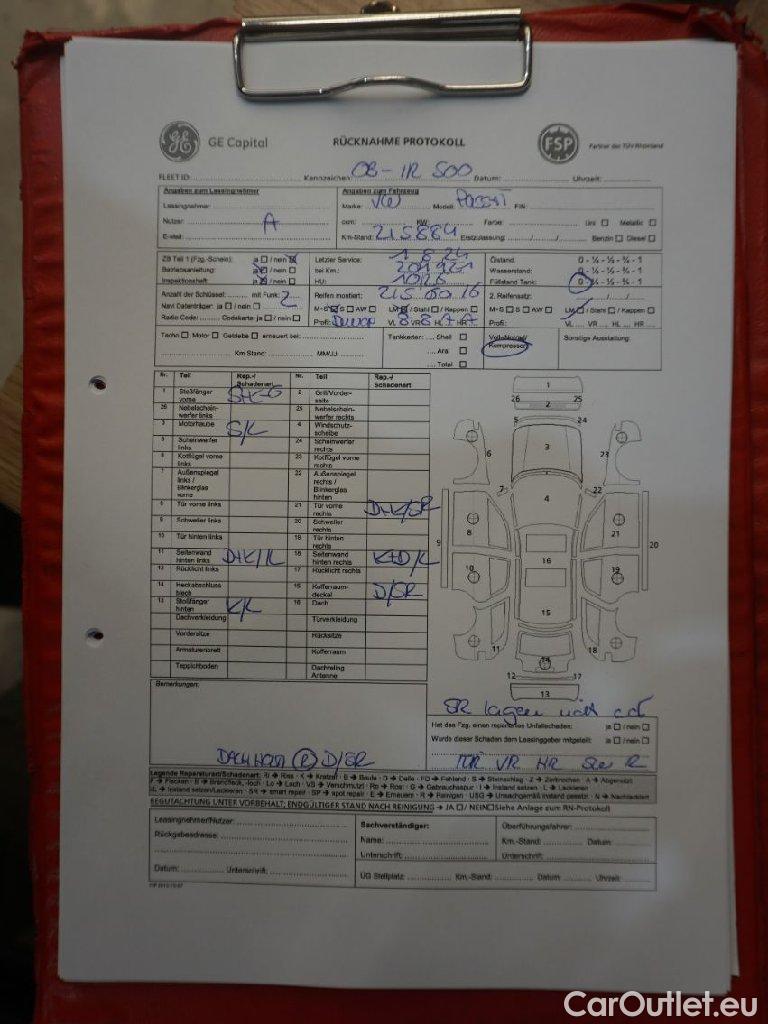 GE GE Capital RÜCKNAHME PROTOKOLL FSP Partner des TÜV Rheinland
FLEET ID Kennzeichen OB-IR 500 Datum: Uhrzeit:
Angaben zum Leasingnehmer
Leasingnehmer:
Nutzer: A
E-mail:
Angaben zum Fahrzeug
Marke: VW Modell: Passat FIN:
ccm: KW: Farbe: Uni □ Metallic □
Km-Stand: 215884 Erstzulassung: / / Benzin □ Diesel □
ZB Teil 1 (Fzg.-Schein): ja □ / nein □
Betriebsanleitung: ja □ / nein □
Inspektionsheft: ja □ / nein □
Letzter Service: 1.8.24
bei Km.:
HU: 10/26
Ölstand: 0 - ¼ - ½ - ¾ - 1
Wasserstand: 0 - ¼ - ½ - ¾ - 1
Füllstand Tank: 0 - ¼ - ½ - ¾ - 1
Anzahl der Schlüssel: mit Funk: 2
Navi Datenträger: ja □ / nein □
Radio Code: Codekarte: ja □ / nein □
Reifen montiert: 215 60 16
M+S □ S □ AW □ LM □ / Stahl □ / Kappen □
Profil: Dunlop VL 8 VR 8 HL 7 HR 7
2. Reifensatz: / /
M+S □ S □ AW □ LM □ / Stahl □ / Kappen □
Profil: VL VR HL HR
Tacho □ Motor □ Getriebe □ erneuert bei:
Km Stand: MM/JJ
Tankkarten: Shell □
Aral □
Total □
Kompressor
Sonstige Ausstattung:
Nr. Teil Rep.-/ Schadenart Nr. Teil Rep.-/ Schadenart
1 Stoßfänger vorne 2 Grill/Vorderseite
26 Nebelscheinwerfer links 25 Nebelscheinwerfer rechts
3 Motorhaube S/L 4 Windschutzscheibe
5 Scheinwerfer links 24 Scheinwerfer rechts
6 Kotflügel vorne links 23 Kotflügel vorne rechts
7 Außenspiegel links / Blinkerglas vorne 22 Außenspiegel rechts / Blinkerglas hinten
8 Tür vorne links 21 Tür vorne rechts D+K/SR
9 Schweller links 20 Schweller rechts
10 Tür hinten links 19 Tür hinten rechts
11 Seitenwand hinten links D+K/L 18 Seitenwand hinten rechts K+D/L
12 Rücklicht links 17 Rücklicht rechts
14 Heckabschlussblech 15 Kofferraumdeckel D/SR
13 Stoßfänger hinten K/L 16 Dach
Dachverkleidung Türverkleidung
Vordersitze Rücksitze
Armaturenbrett Kofferraum
Teppichboden Dachreling Antenne
1
26 2 25
5 24
6 3 23
7 4 22
8 21
9 20
16
10 19
15
11 18
14
12 17
13
Bemerkungen:
Hat das Fzg. einen reparierten Unfallschaden: ja □ / nein □
Wurde dieser Schaden dem Leasinggeber mitgeteilt: ja □ / nein □
TÜR VR HR
R D/SR
Legende Reparaturart/Schadenart:
BEGUTACHTUNG UNTER VORBEHALT; ENDGÜLTIGER STAND NACH REINIGUNG → JA □ / NEIN □ Siehe Anlage zum RN-Protokoll
Leasingnehmer/Nutzer:
Rückgabeadresse:
Datum: Unterschrift:
Sachverständiger:
Name:
Unterschrift:
Überführungsfahrer:
Km.-Stand: Datum:
Unterschrift:
ÜG Stellplatz: Km.-Stand: Datum Uhrzeit:
CarOutlet.eu